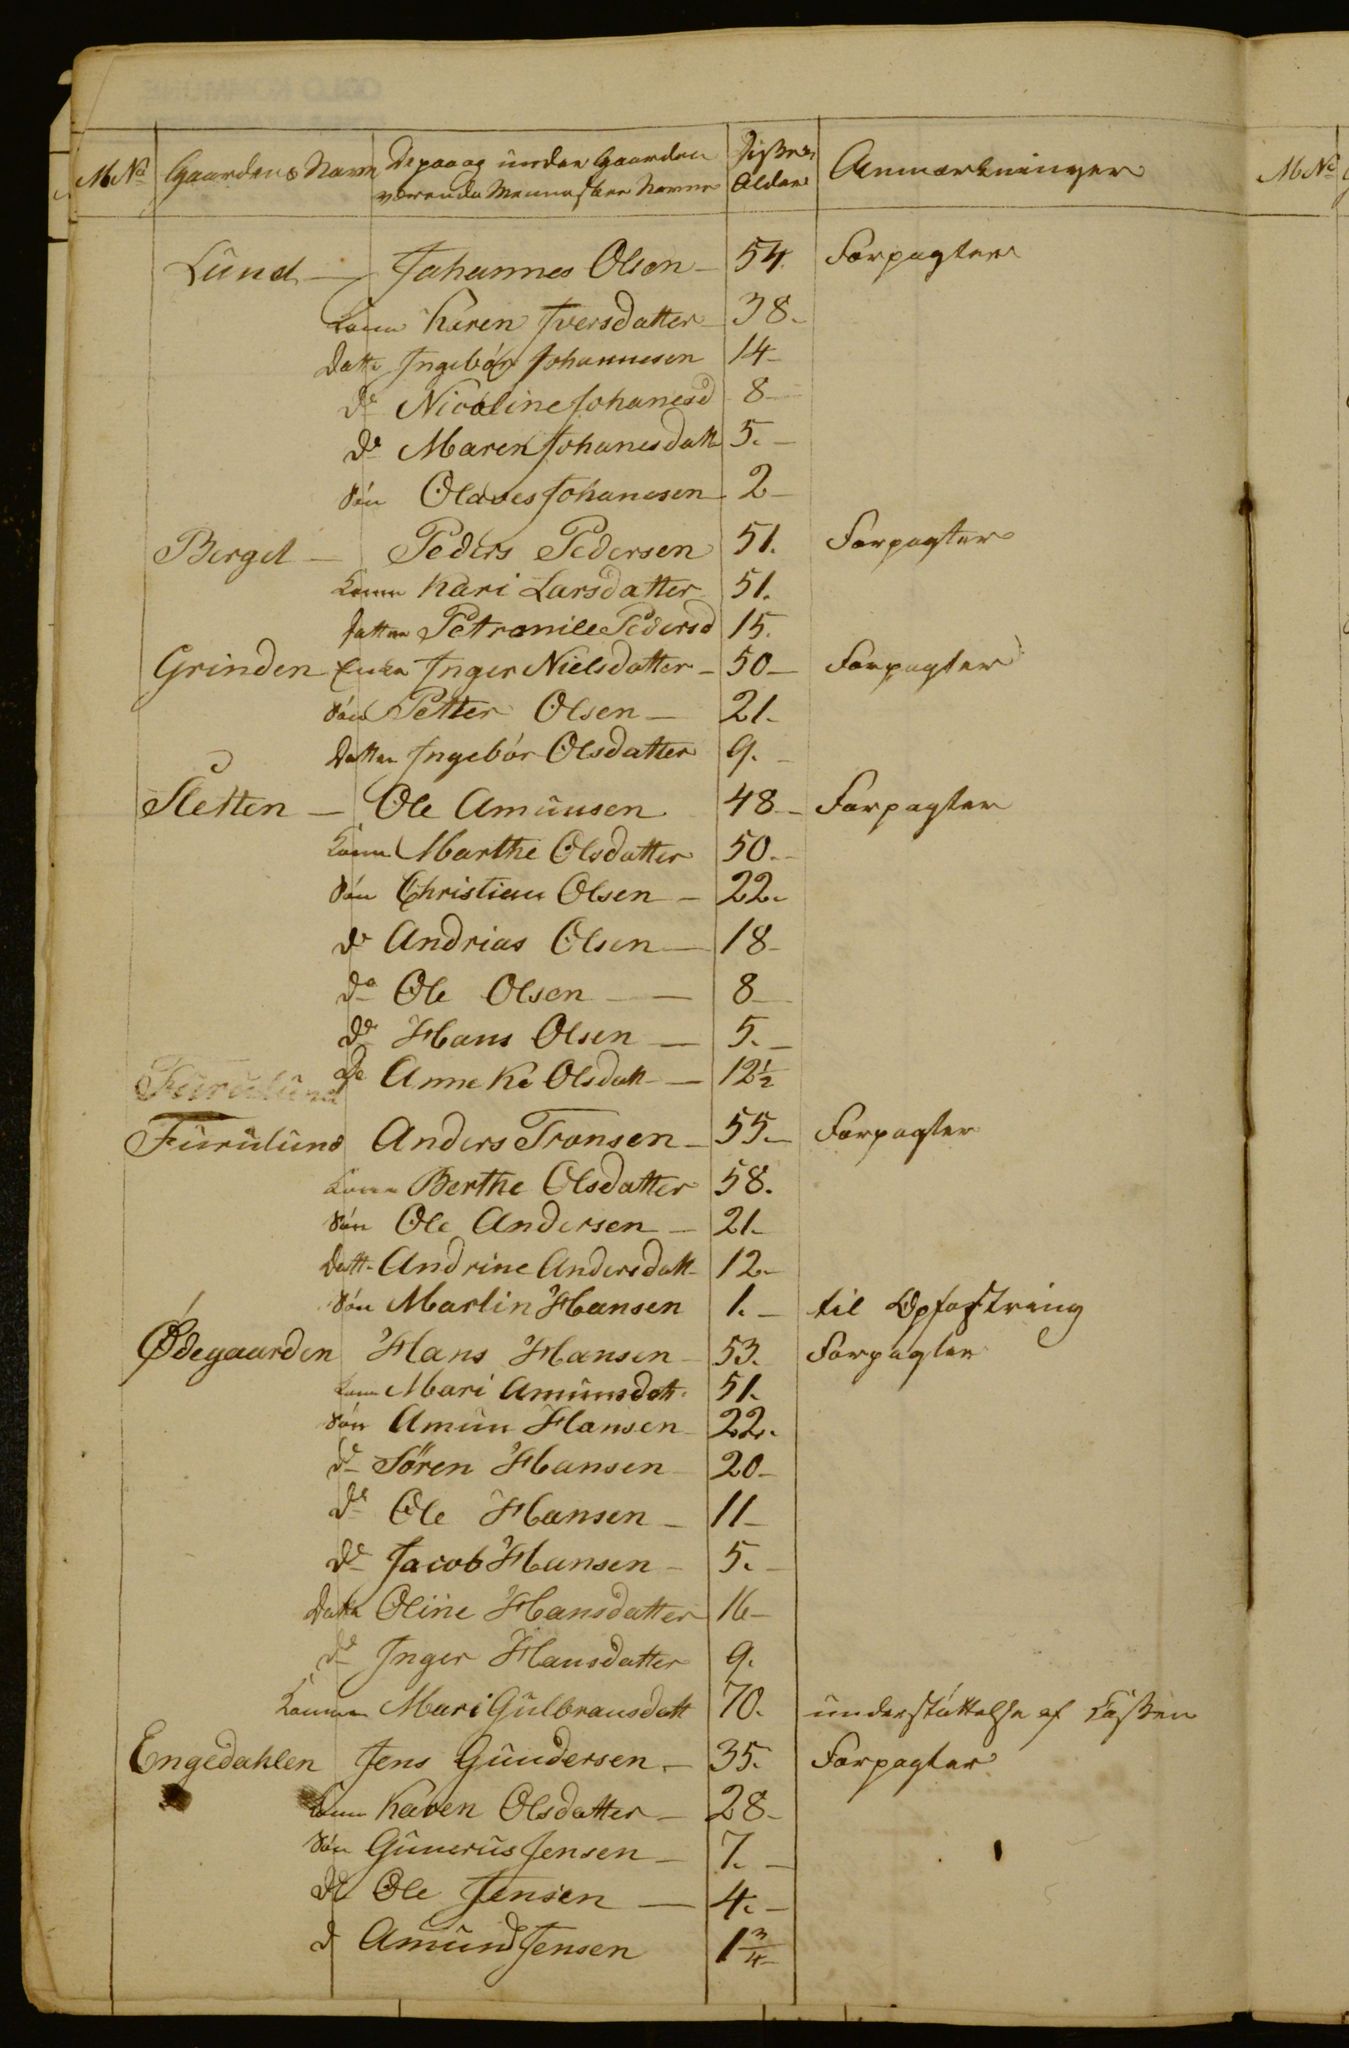 MNo Gaardens Navn De paa og under Gaarden Disses Anmærkninger MNo
værende Menneskers Navne Alder
Lund — Johannes Olsen — 54. Forpagter
Kone Karen Iversdatter 38.
Datter Ingebór Johannesen 14
do Nicoline Johanesd 8
do Maren Johanesdatt 5.
Són Olaves Johanesen 2
Berget — Peders Pedersen 51. Forpagter
Kone Kari Larsdatter 51.
Datter Petronille Pedersd 15.
Grinden Enke Inger Nielsdatter — 50 — Forpagter
Són Petter Olsen — 21.
Datter Ingebór Olsdatter 9.
Sletten — Ole Amunsen 48 — Forpagter
Kone Marthe Olsdatter 50.
Són Christian Olsen — 22.
do Andrias Olsen — 18
do Ole Olsen — 8
do Hans Olsen — 5.
Furulund do Anne Ka Olsdatt — 12½
Furulund Anders Tronsen — 55 — Forpagter
Kone Berthe Olsdatter 58.
Són Ole Andersen — 21.
Datt. Andrine Andersdatt 12.
Són Martin Hansen 1. — til Opfostring
Ødegaarden Hans Hansen — 53. Forpagter
Kone Mari Amunsdatt. 51.
Són Amun Hansen 22.
do Sören Hansen 20
do Ole Hansen — 11
do Jacob Hansen — 5.
Datter Oline Hansdatter 16
do Inger Hansdatter 9.
Konen Mari Gulbransdatt 70. understøttelse af Cassen
Engedahlen Jens Gundersen — 35. Forpagter
Kone Karen Olsdatter — 28
Són Gunerus Jensen — 7.
do Ole Jensen — 4.
d Amund Jensen 1¾